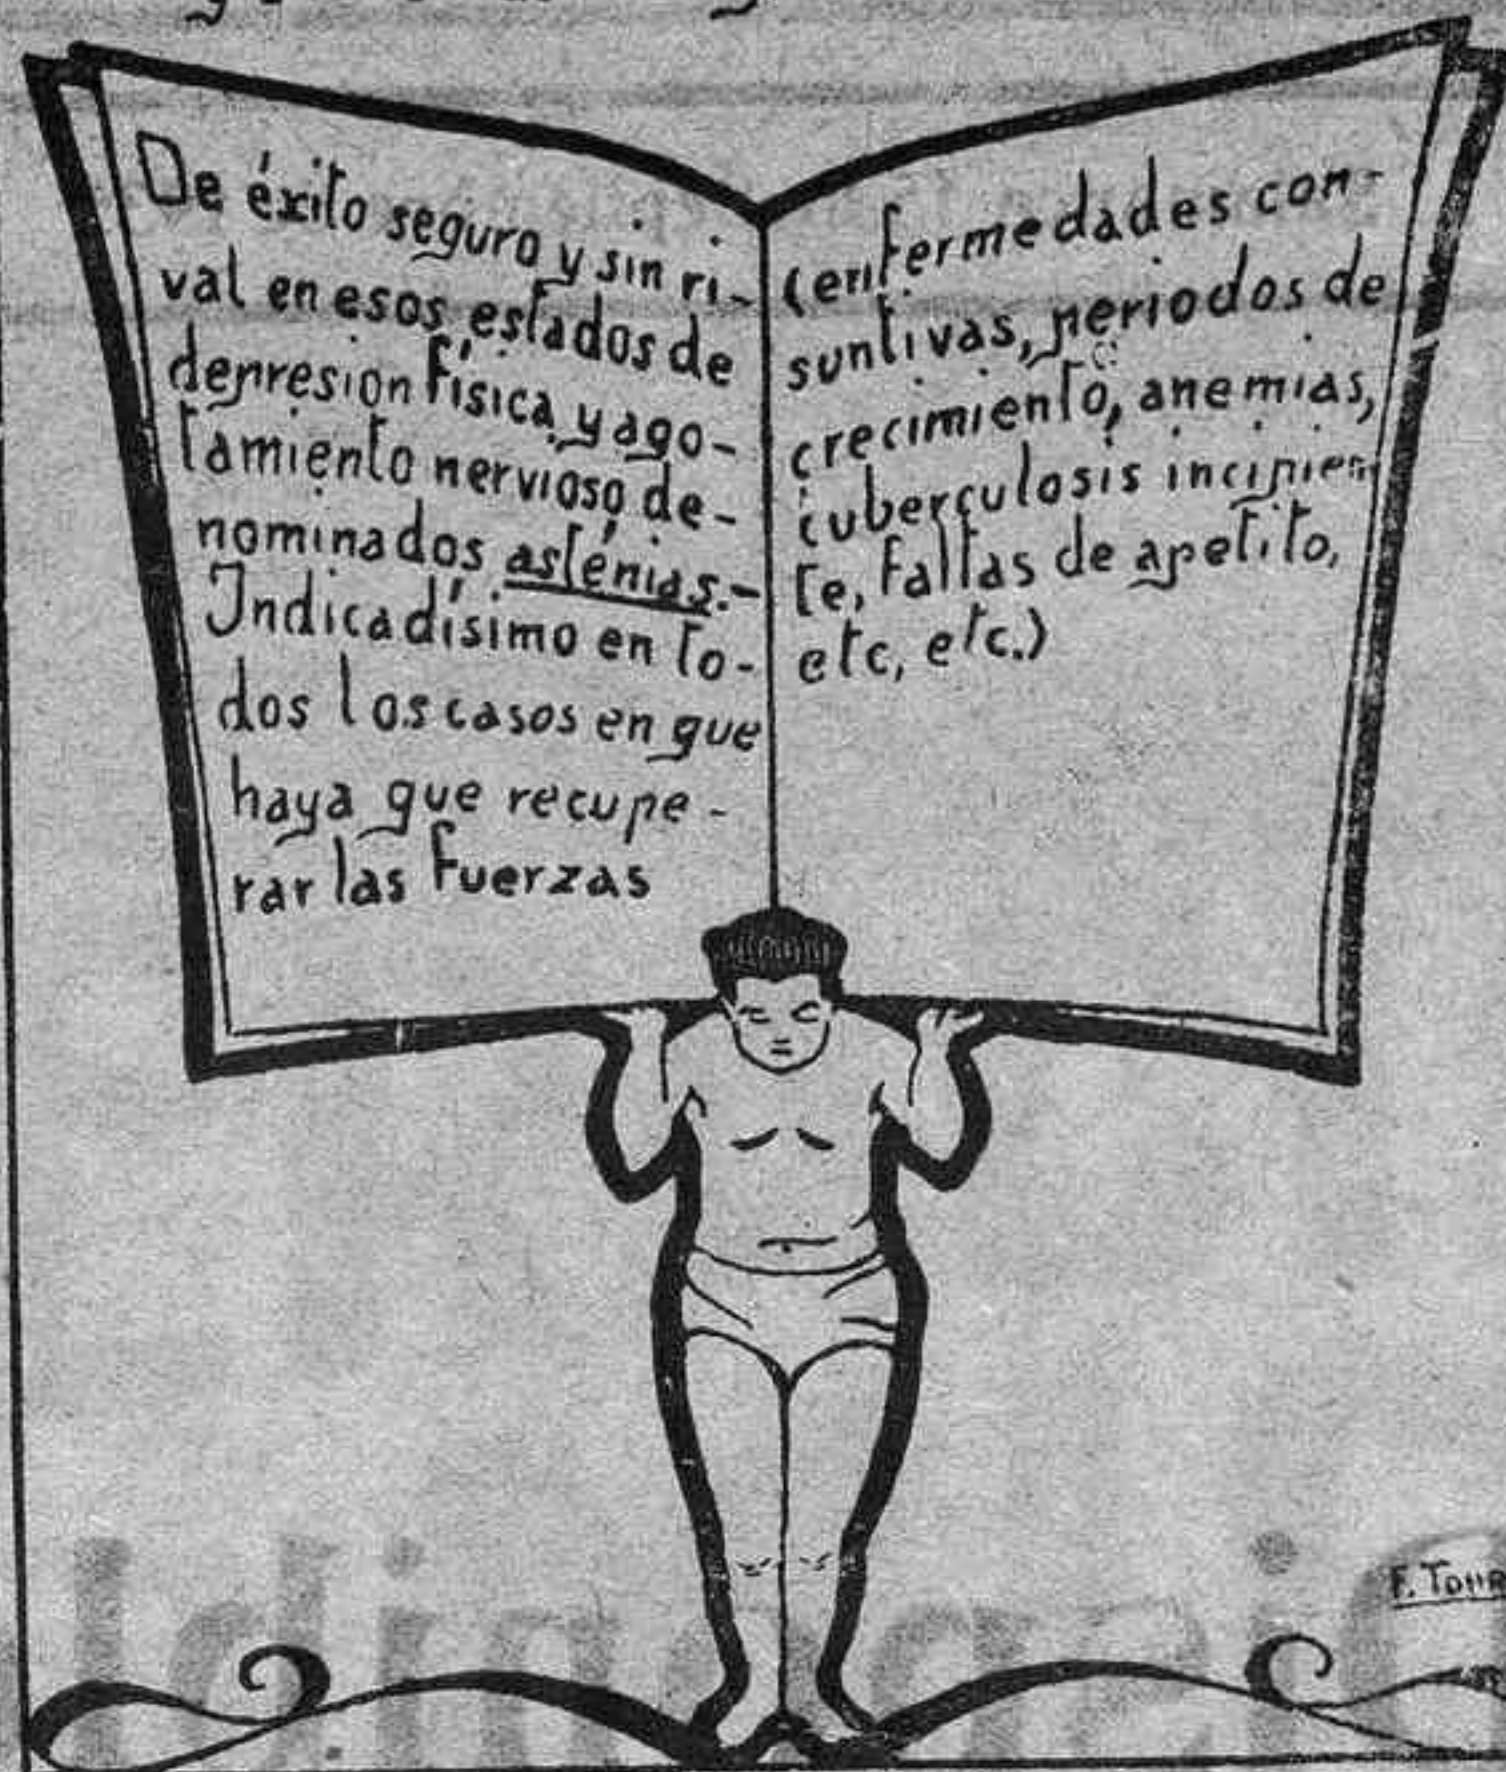 De éxito seguro y sin ri-
val en esos estados de
depresion física y ago-
tamiento nervioso de-
nominados asténias.-
Indicadísimo en to-
dos los casos en que
haya que recupe-
rar las fuerzas
(enfermedades con-
suntivas, periodos de
crecimiento, anemias,
tuberculosis incipien
te, faltas de apetito,
etc, etc.)
F.